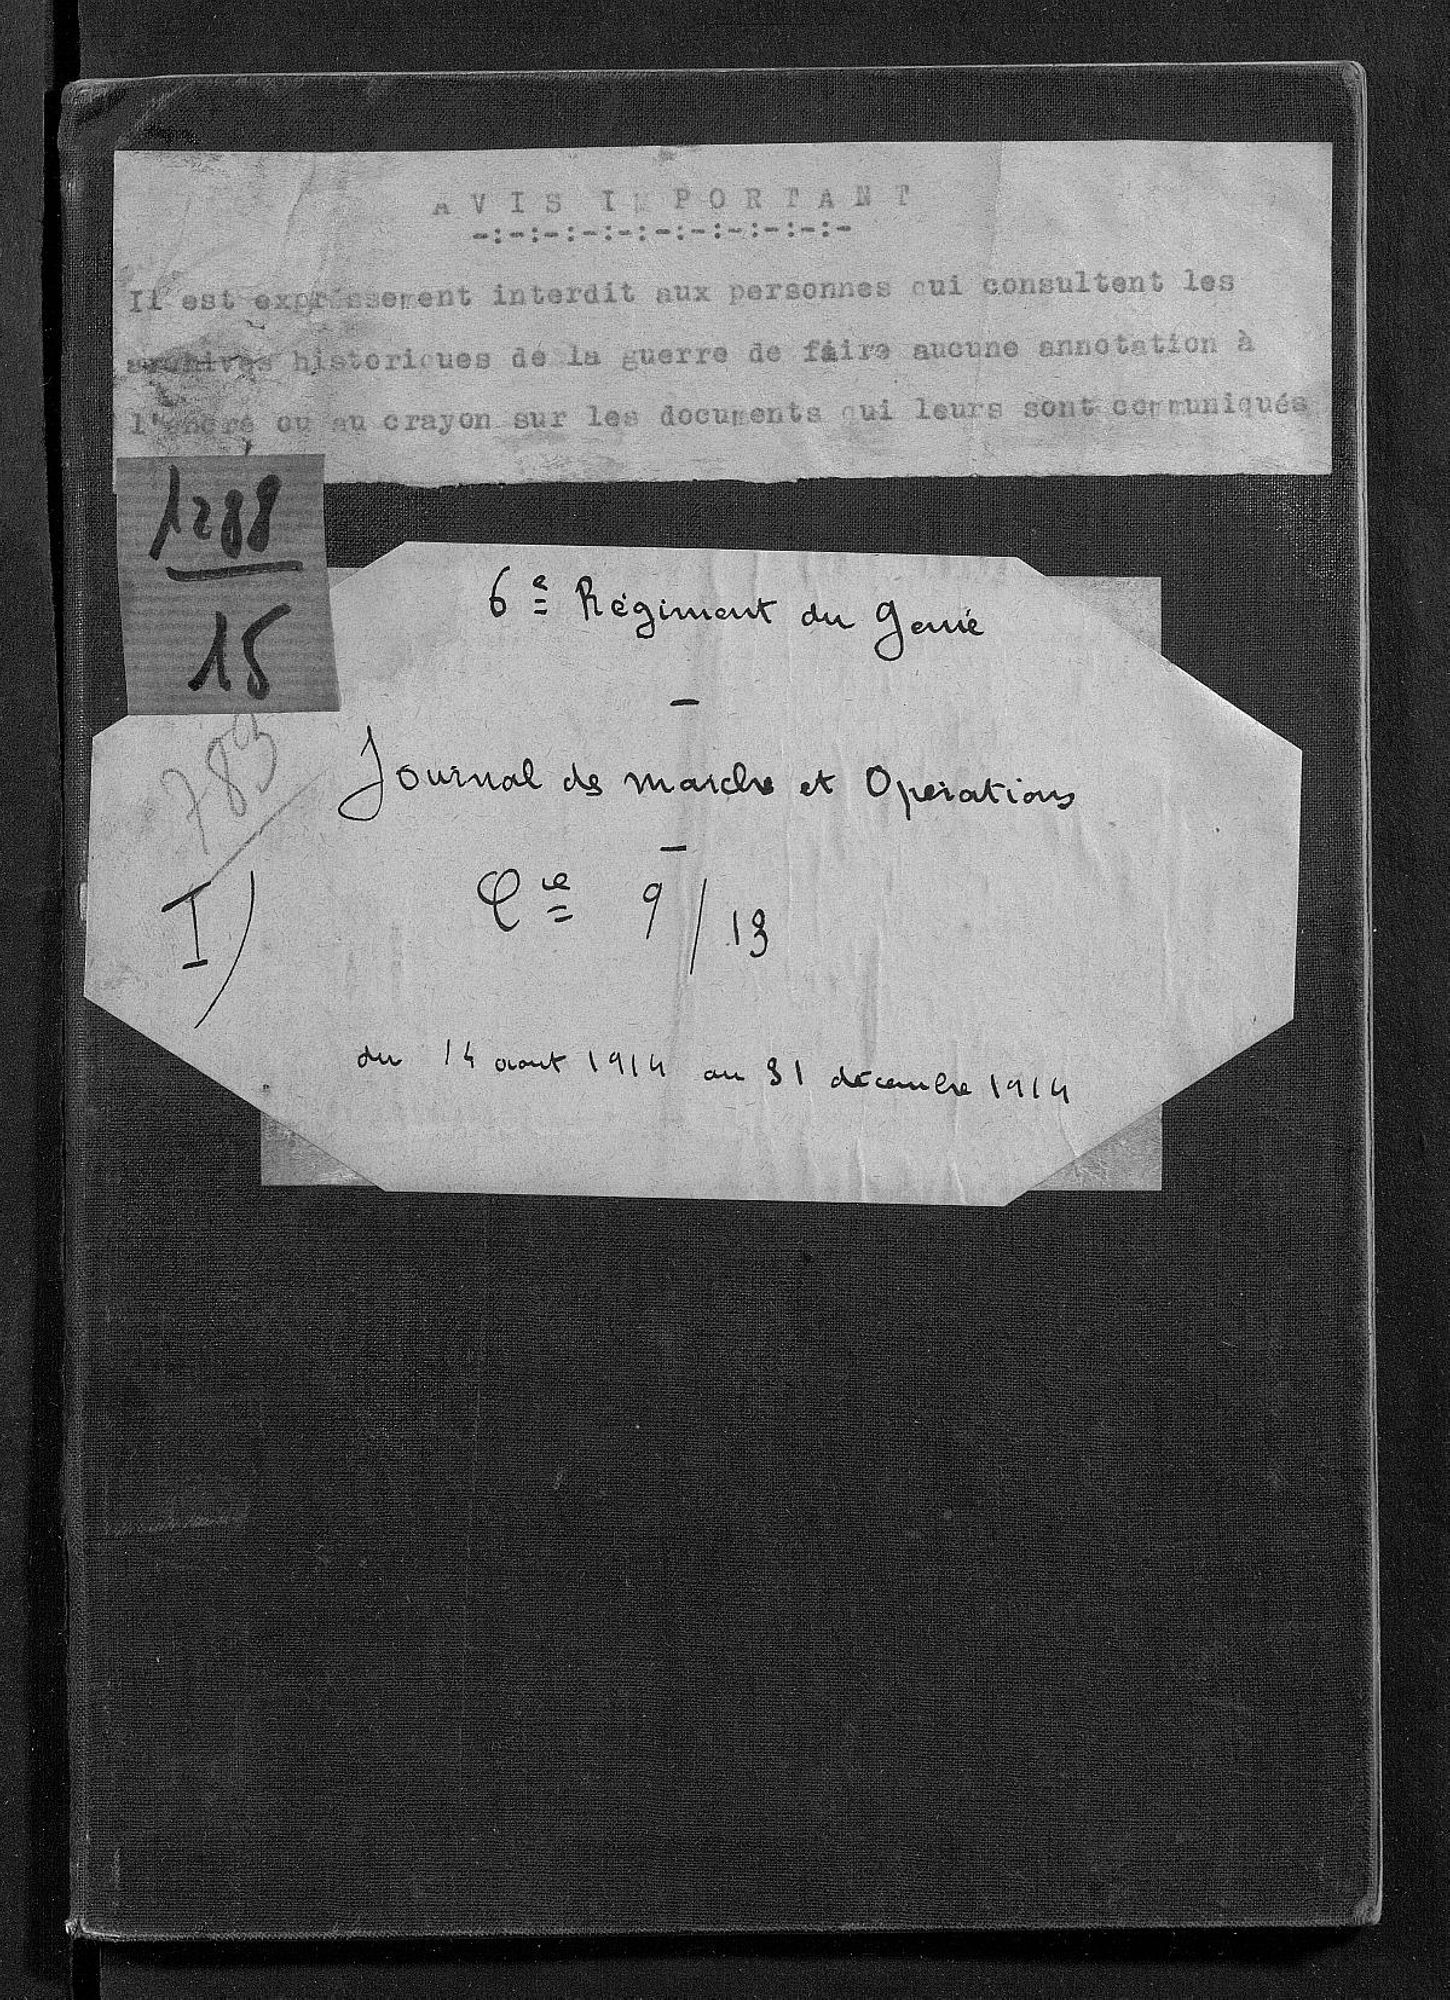 AVIS IMPORTANT
-:-:-:-:-:-:-:-:-:-:-
Il est expressement interdit aux personnes qui consultent les
archives historiques de la guerre de faire aucune annotation à
l'encre ou au crayon sur les documents qui leurs sont communiqués
1288
15
6e Régiment du Génie
-
783
Journal de marche et Opérations
-
I) Cie 9/13
du 14 aout 1914 au 31 décembre 1914